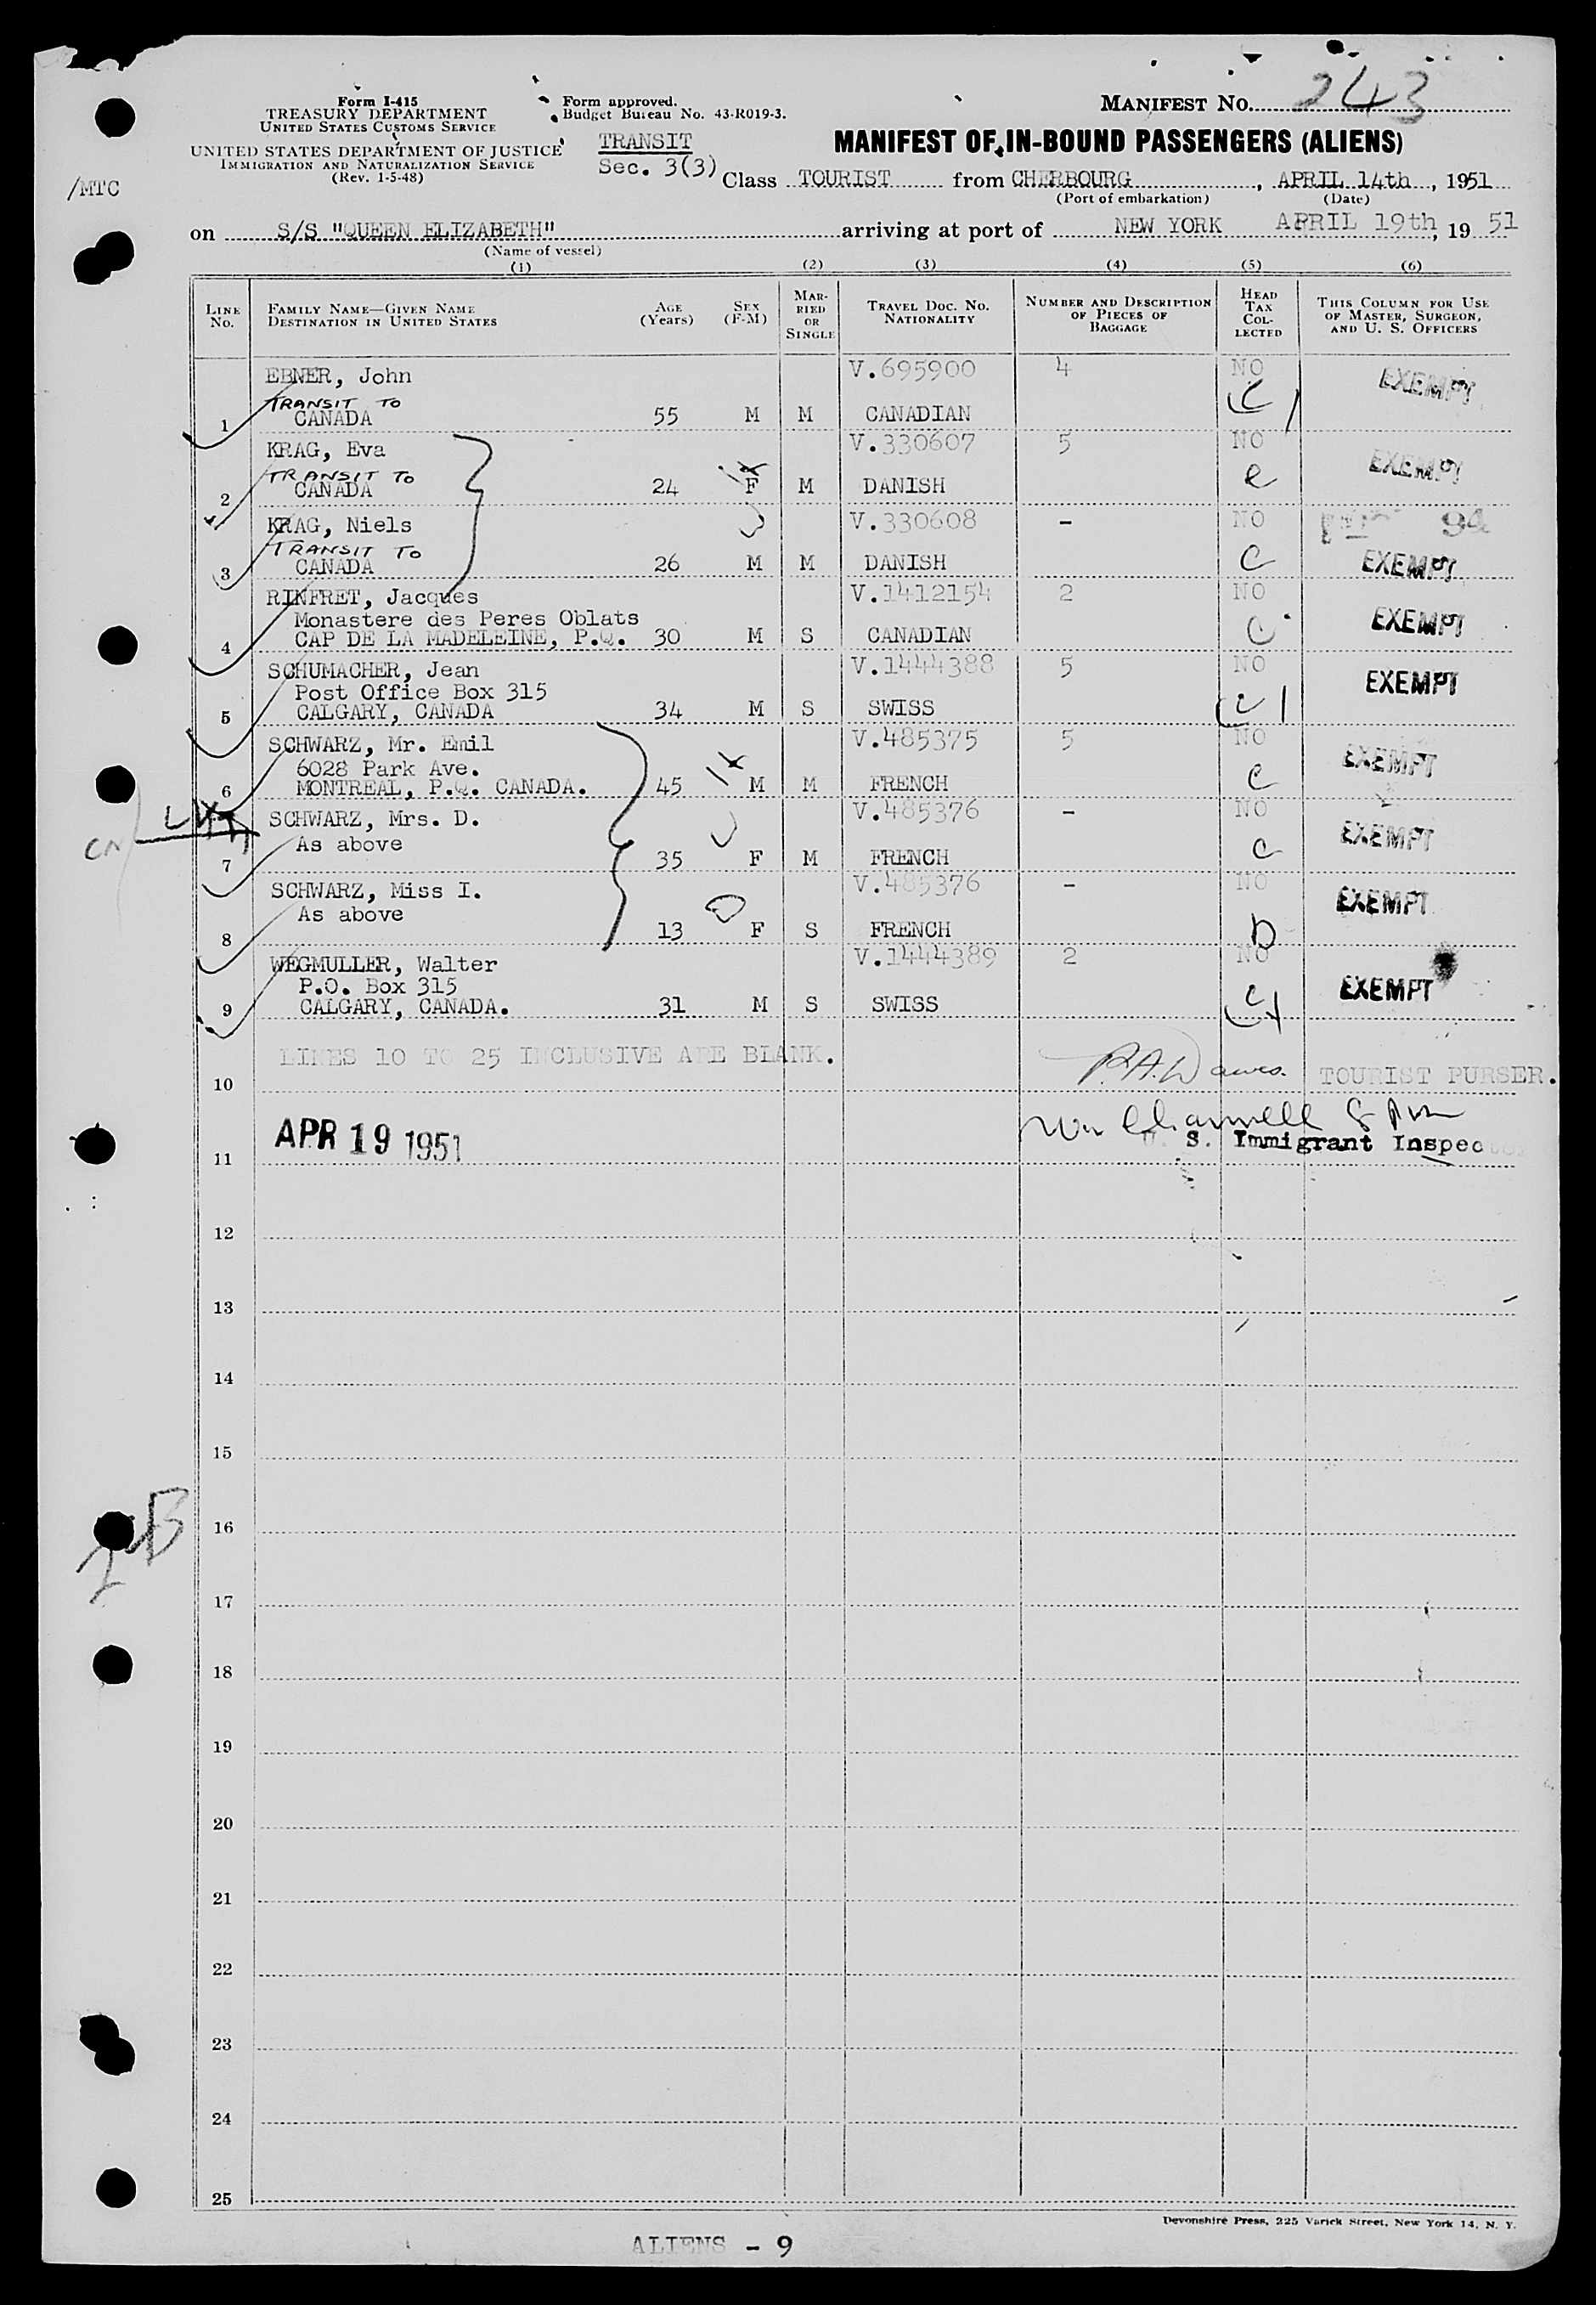 Form I-415
TREASURY DEPARTMENT
UNITED STATES CUSTOMS SERVICE
UNITED STATES DEPARTMENT OF JUSTICE
IMMIGRATION AND NATURALIZATION SERVICE
(Rev. 1-5-48)
/MTC
Form approved.
Budget Bureau No. 43-R019-3.
TRANSIT
Sec. 3(3)
MANIFEST No. 243
MANIFEST OF IN-BOUND PASSENGERS (ALIENS)
Class TOURIST from CHERBOURG, APRIL 14th, 1951
(Port of embarkation) (Date)
on S/S "QUEEN ELIZABETH" arriving at port of NEW YORK APRIL 19th, 19 51
(Name of vessel)
(1) (2) (3) (4) (5) (6)
LINE No. FAMILY NAME—GIVEN NAME DESTINATION IN UNITED STATES AGE (Years) SEX (F-M) MARRIED OR SINGLE TRAVEL DOC. NO. NATIONALITY NUMBER AND DESCRIPTION OF PIECES OF BAGGAGE HEAD TAX COLLECTED THIS COLUMN FOR USE OF MASTER, SURGEON, AND U. S. OFFICERS
EBNER, John V.695900 4 NO EXEMPT
TRANSIT TO C
1 CANADA 55 M M CANADIAN
KRAG, Eva V.330607 5 NO EXEMPT
TRANSIT TO
2 CANADA 24 F M DANISH
KRAG, Niels V.330608 - NO
TRANSIT TO
3 CANADA 26 M M DANISH C EXEMPT
RINFRET, Jacques V.1412154 2 NO
Monastere des Peres Oblats EXEMPT
4 CAP DE LA MADELEINE, P.Q. 30 M S CANADIAN C
SCHUMACHER, Jean V.1444388 5 NO
Post Office Box 315 EXEMPT
5 CALGARY, CANADA 34 M S SWISS C
SCHWARZ, Mr. Emil V.485375 5 NO
6028 Park Ave. EXEMPT
6 MONTREAL, P.Q. CANADA. 45 M M FRENCH C
SCHWARZ, Mrs. D. V.485376 - NO
As above EXEMPT
7 35 F M FRENCH C
SCHWARZ, Miss I. V.485376 - NO
As above EXEMPT
8 13 F S FRENCH D
WEGMULLER, Walter V.1444389 2 NO
P.O. Box 315 EXEMPT
9 CALGARY, CANADA. 31 M S SWISS C
LINES 10 TO 25 INCLUSIVE ARE BLANK.
10 P.A. Dawes. TOURIST PURSER.
APR 19 1951
11 U. S. Immigrant Inspector
12
13
14
15
16
17
18
19
20
21
22
23
24
25
Devonshire Press, 225 Varick Street, New York 14, N. Y.
ALIENS - 9